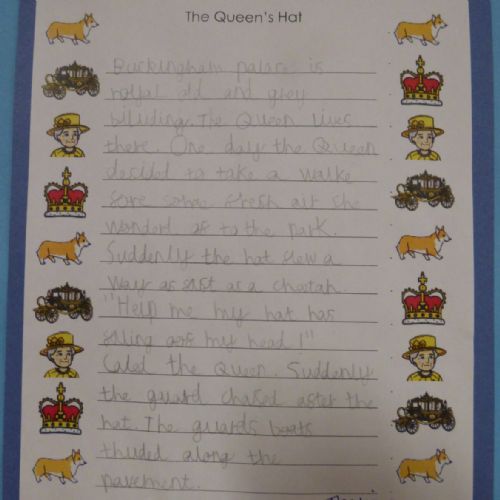 The Queen's Hat
Buckingham palace is
royal old and grey
biluding. The Queen lives
there One day the Queen
decided to take a walke
fore some fresh air she
wonderd of to the park.
Suddenly the hat flew a
way as fast as a cheetah.
"Help me my hat has
flling off my head !"
Caled the Queen. Suddenly
the guard chased after the
hat. The guards boats
thuded along the
pavement.